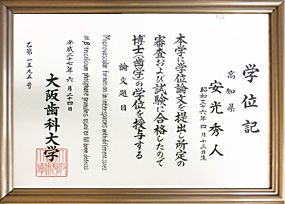 学位記
高知県
安光秀人
昭和三十六年四月十三日生
本学に学位論文を提出し所定の
審査および試験に合格したので
博士(歯学)の学位を授与する
論文題目
Microvascular formation in interspaces with different sizes
of β tricalcium phosphate granules used to fill bone defects
平成二十七年六月二十四日
大阪歯科大学
乙第一五九五号